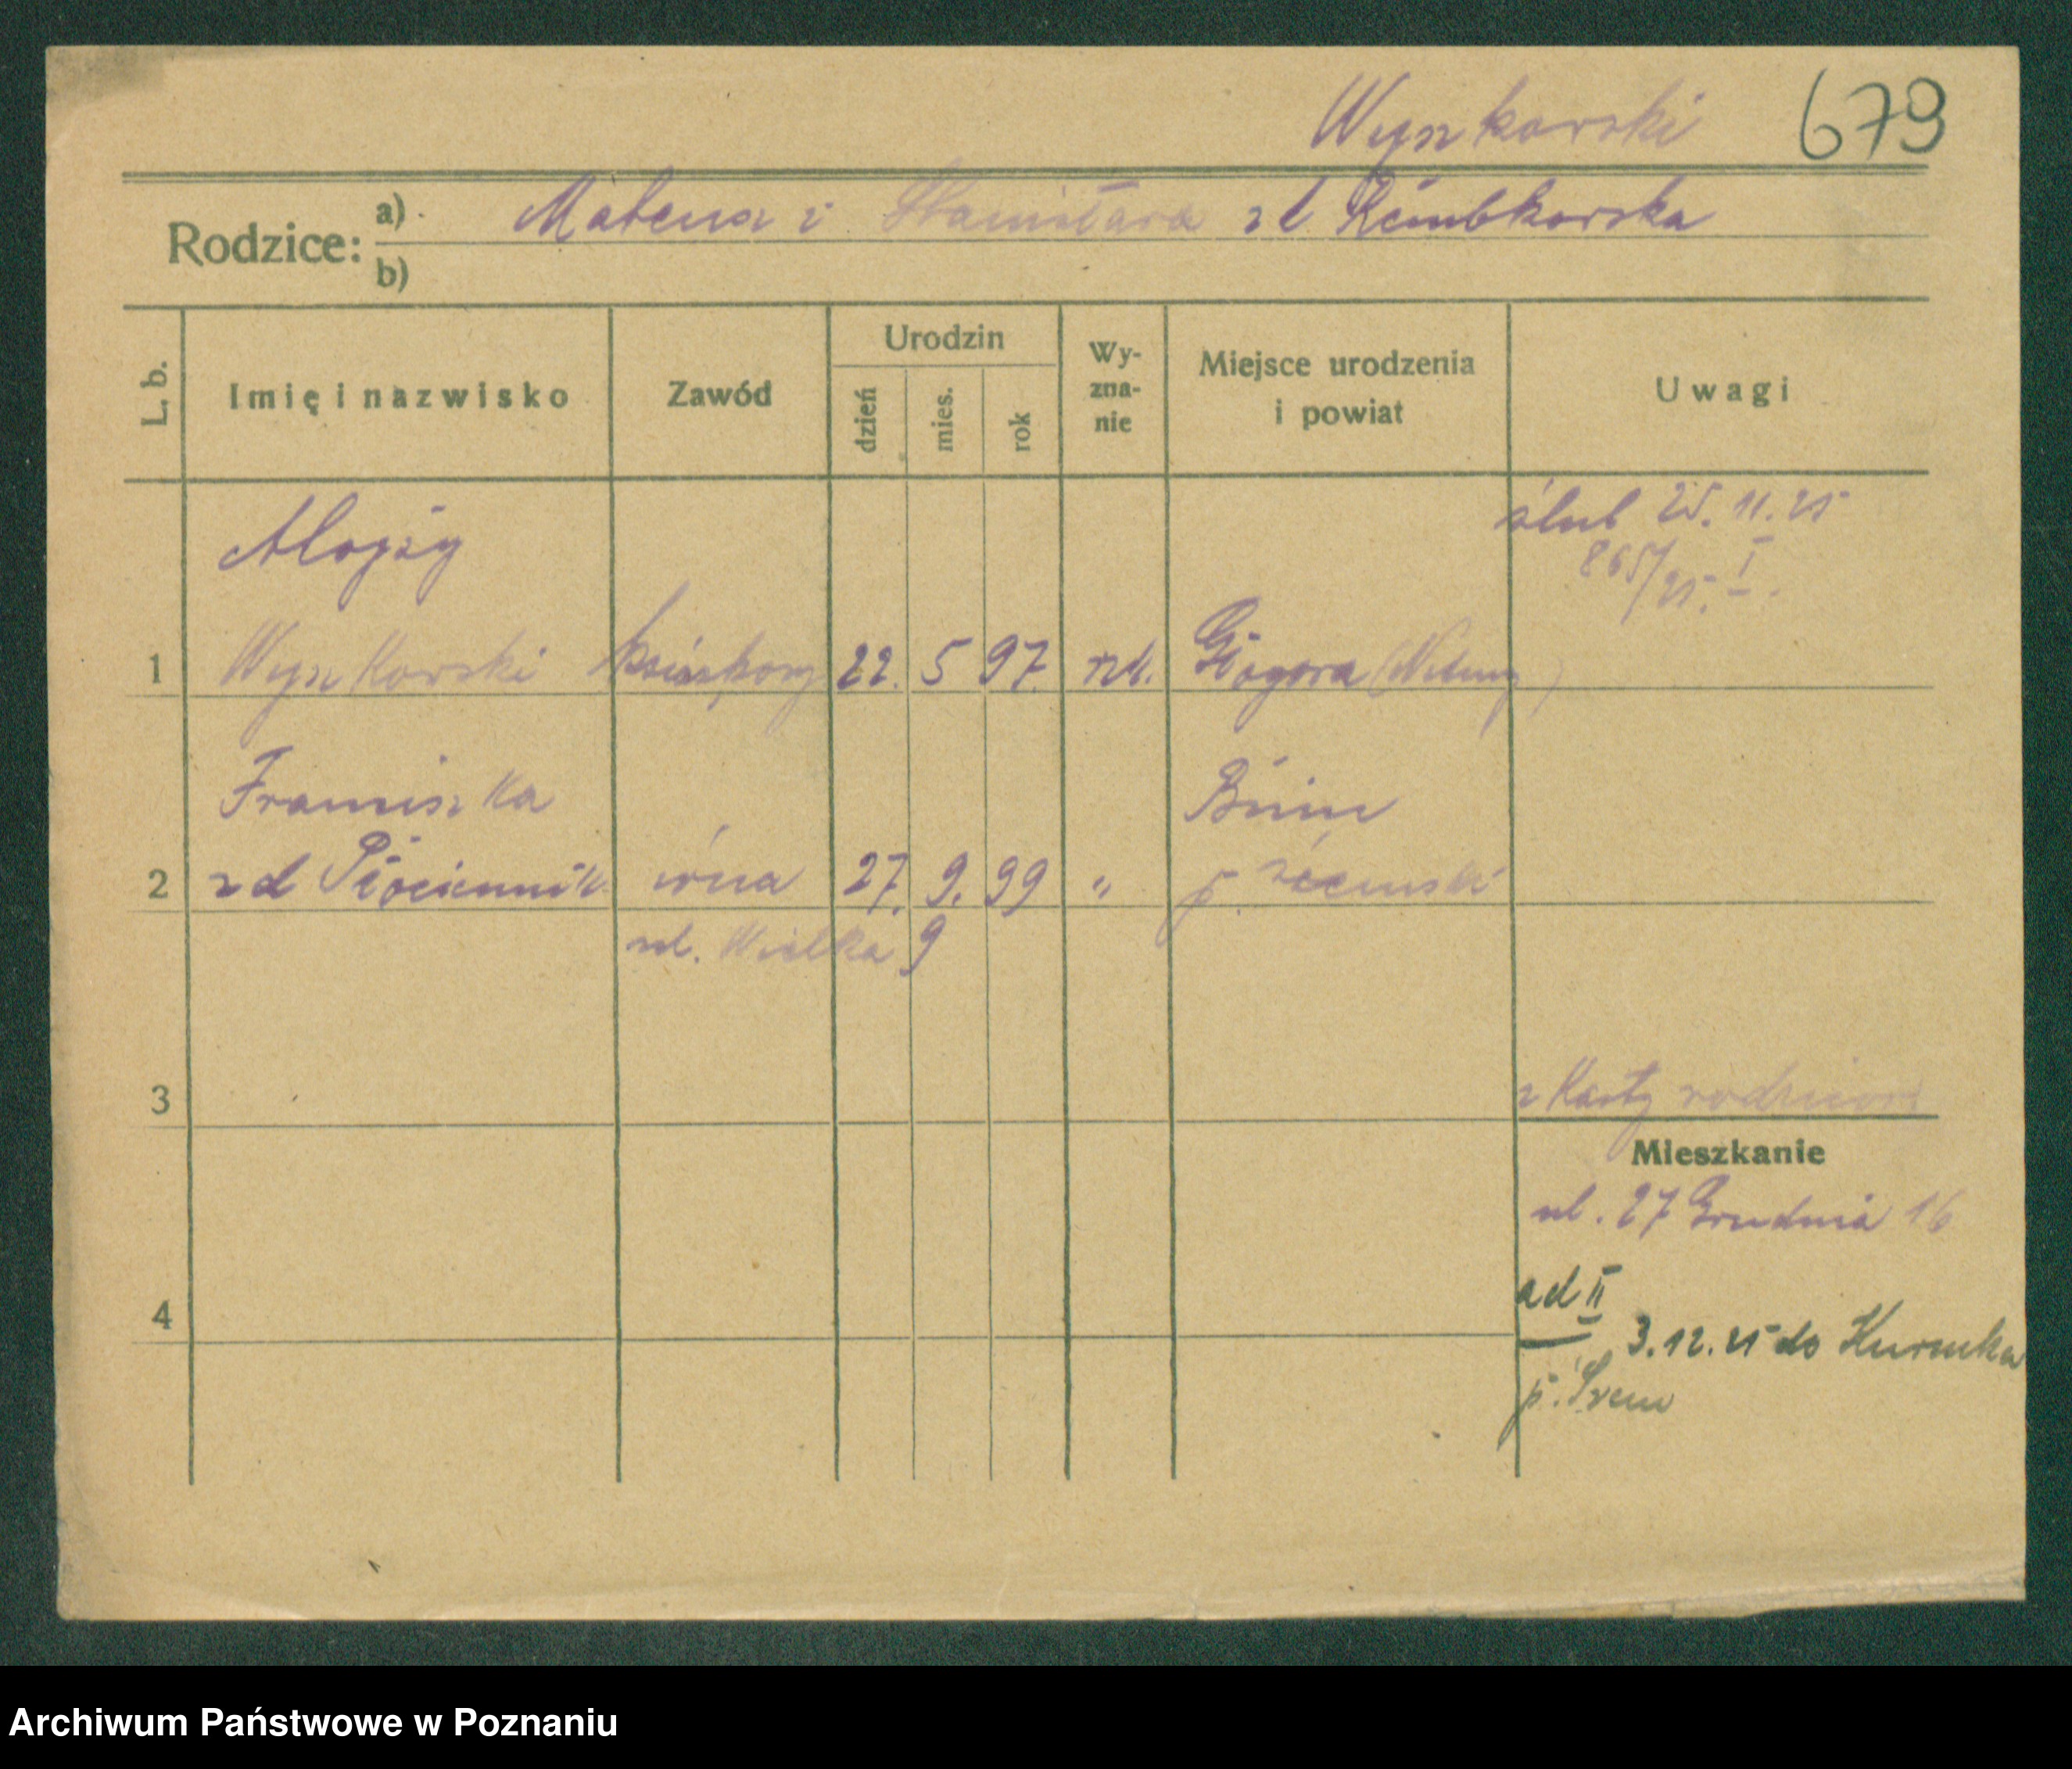 Wyszkowski 679
Rodzice: a) Mateusz i Stanisława zd Rembkowska
b)
L. b. Imię i nazwisko Zawód Urodzin dzień mies. rok Wyznanie Miejsce urodzenia i powiat Uwagi
Alojzy ślub 25. 11. 25
865/25. I.
1 Wyszkowski 22. 5 97. rzk.
Franciszka Bnin
2 zd Płóciennik ówna 27. 9. 99 " p.
ul. Wielka 9
3 z Karty rodziców
Mieszkanie
ul. 27 Grudnia 16
4 ad II
3. 12. 25 do Kurnika
p. Śrem
Archiwum Państwowe w Poznaniu